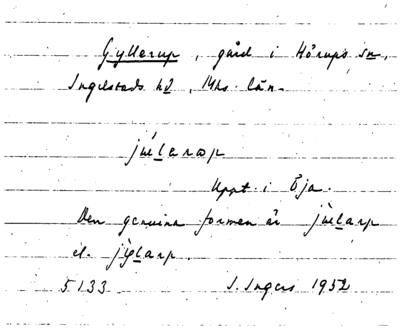 Gyllerup, gård i Hörups sn,
Ingelstads hd, Mhs. län.
jùlerap
Uppt. i Öja.
Den genuina formen är jùlarp
el. jỳlarp.
5133 I. Ingers 1952